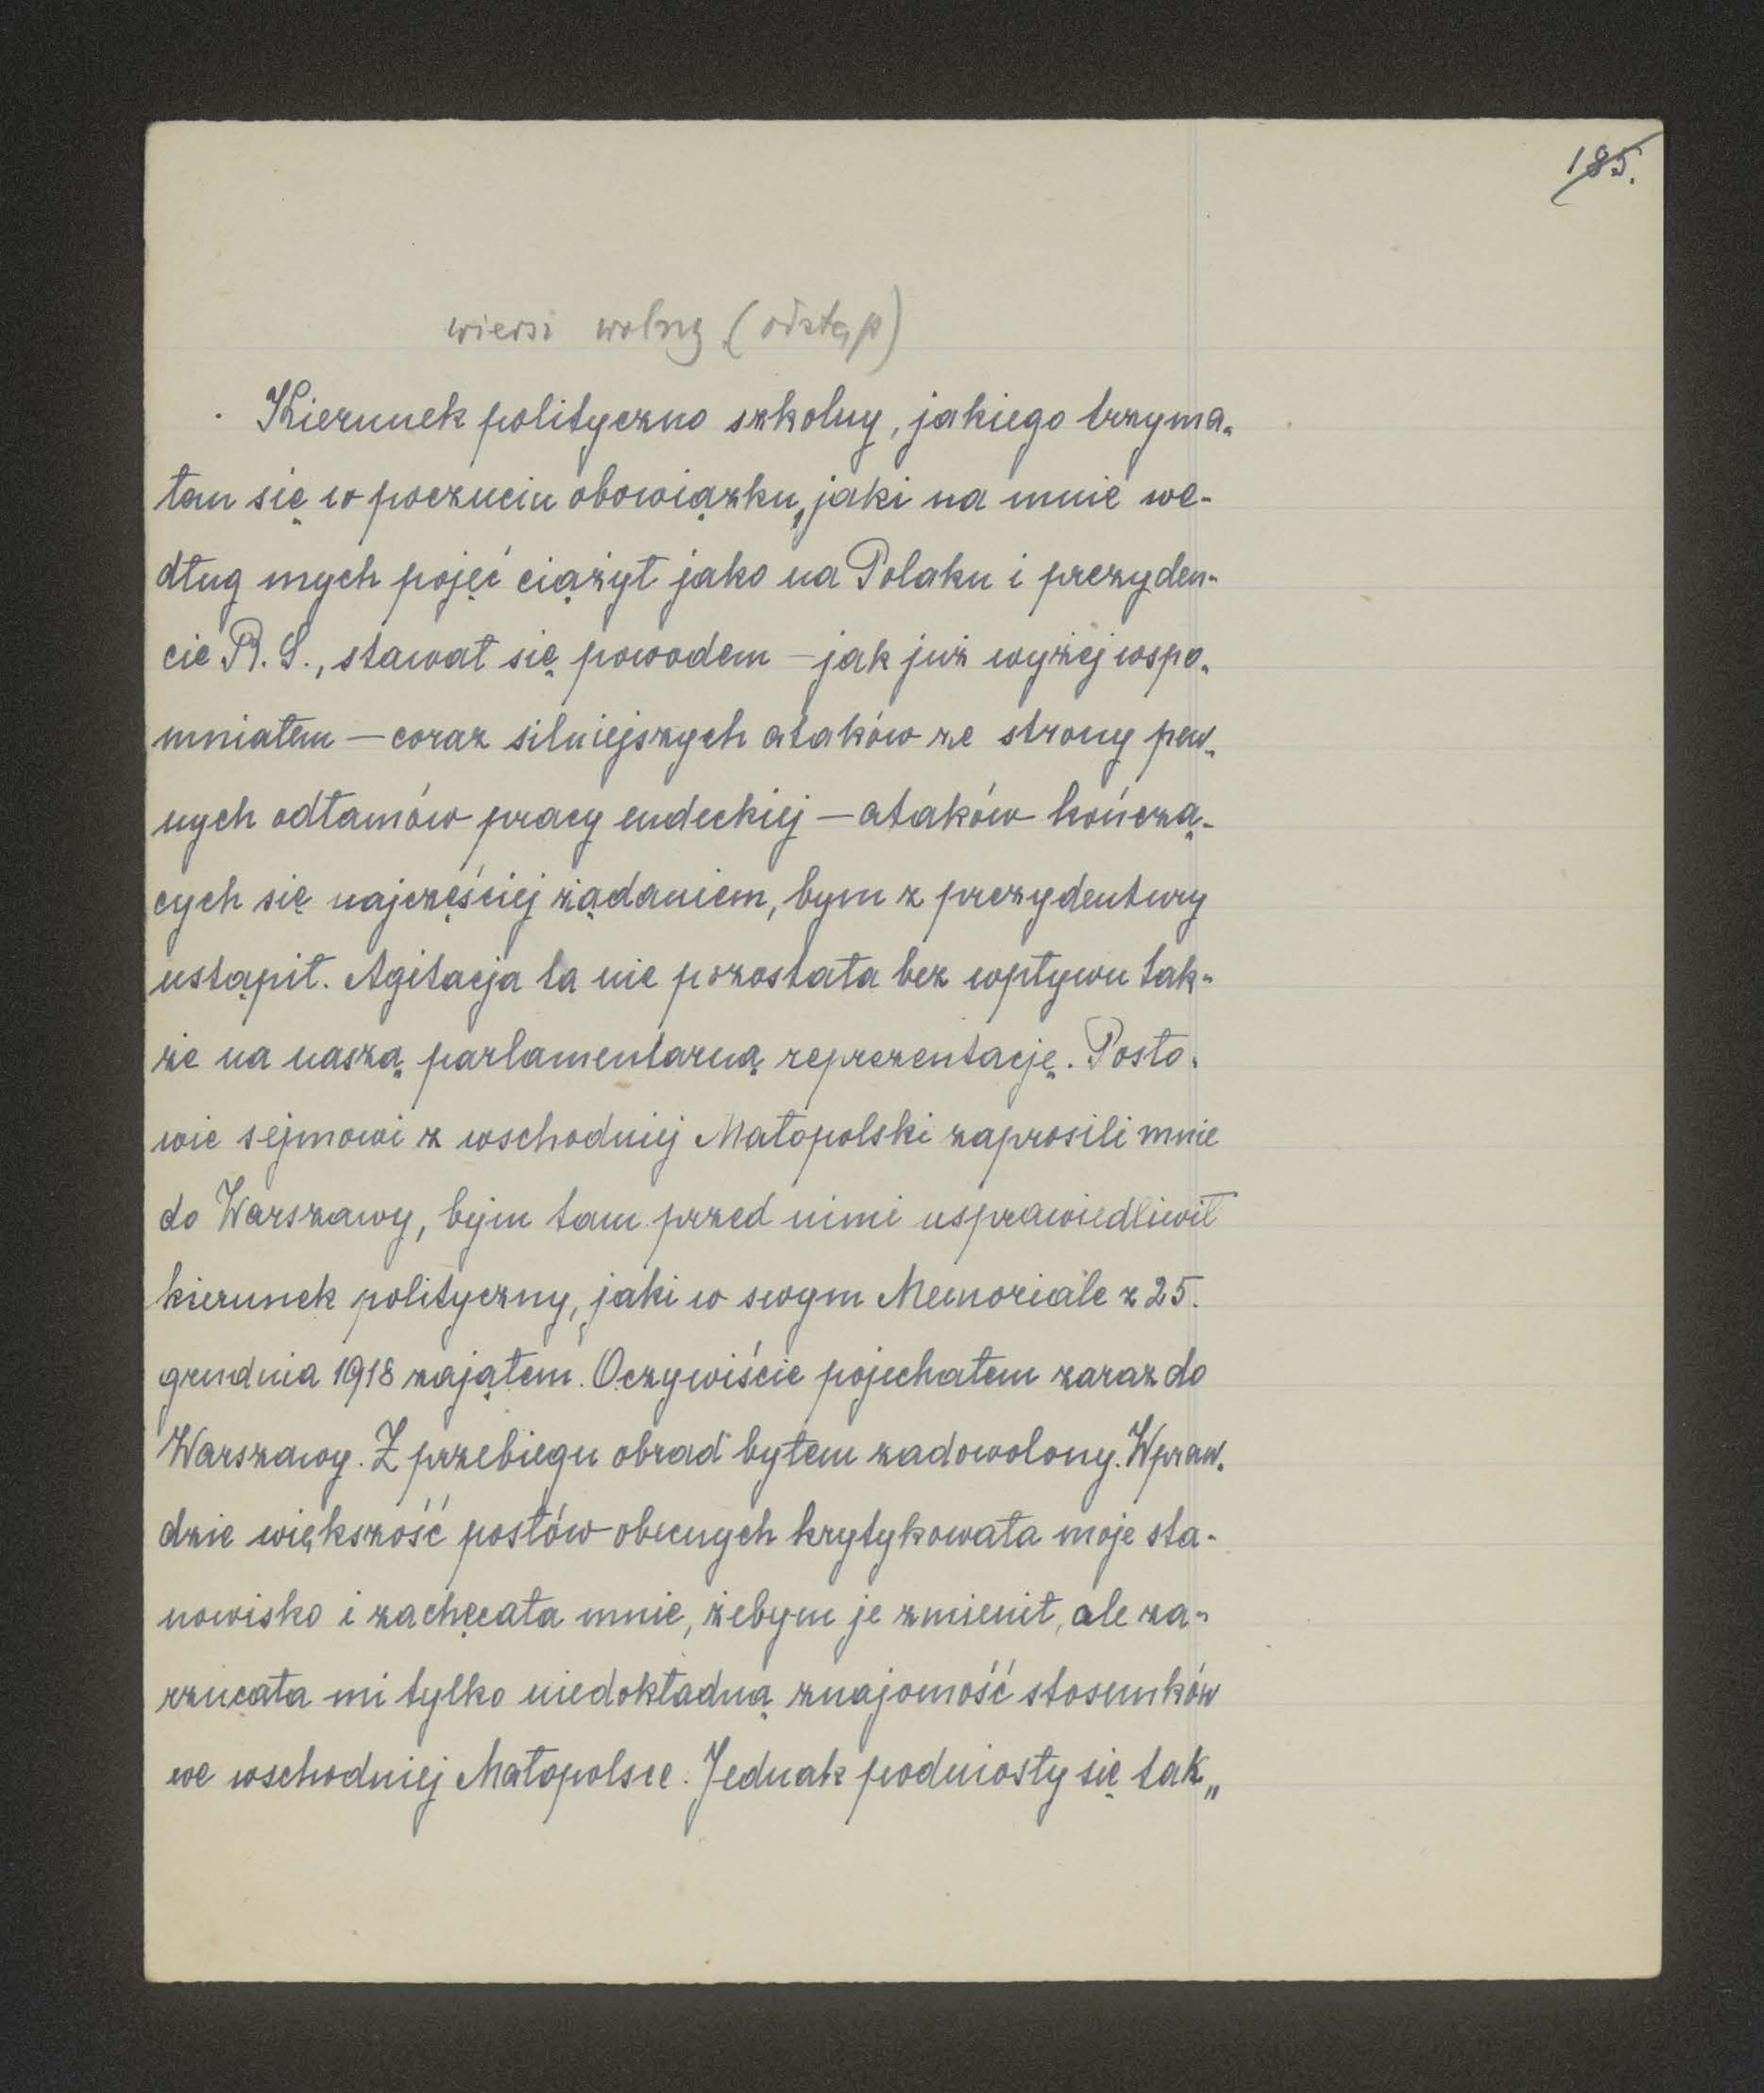 185.
wiersz wolny (odstęp)
Kierunek polityczno szkolny, jakiego trzyma-
łem się w poczuciu obowiązku, jaki na mnie we-
dług mych pojęć ciążył jako na Polaku i prezyden-
cie R. S., stawał się powodem — jak już wyżej wspo-
mniałem — coraz silniejszych ataków ze strony pew-
nych odłamów pracy endeckiej — ataków kończą-
cych się najczęściej żądaniem, bym z prezydentury
ustąpił. Agitacja ta nie pozostała bez wpływu tak-
że na naszą parlamentarną reprezentację. Posło-
wie sejmowi z wschodniej Małopolski zaprosili mnie
do Warszawy, bym tam przed nimi usprawiedliwił
kierunek polityczny, jaki w swym Memoriale z 25.
grudnia 1918 zająłem. Oczywiście pojechałem zaraz do
Warszawy. Z przebiegu obrad byłem zadowolony. Wpraw-
dzie większość posłów obecnych krytykowała moje sta-
nowisko i zachęcała mnie, żebym je zmienił, ale za-
rzucała mi tylko niedokładną znajomość stosunków
we wschodniej Małopolsce. Jednak podniosły się tak„